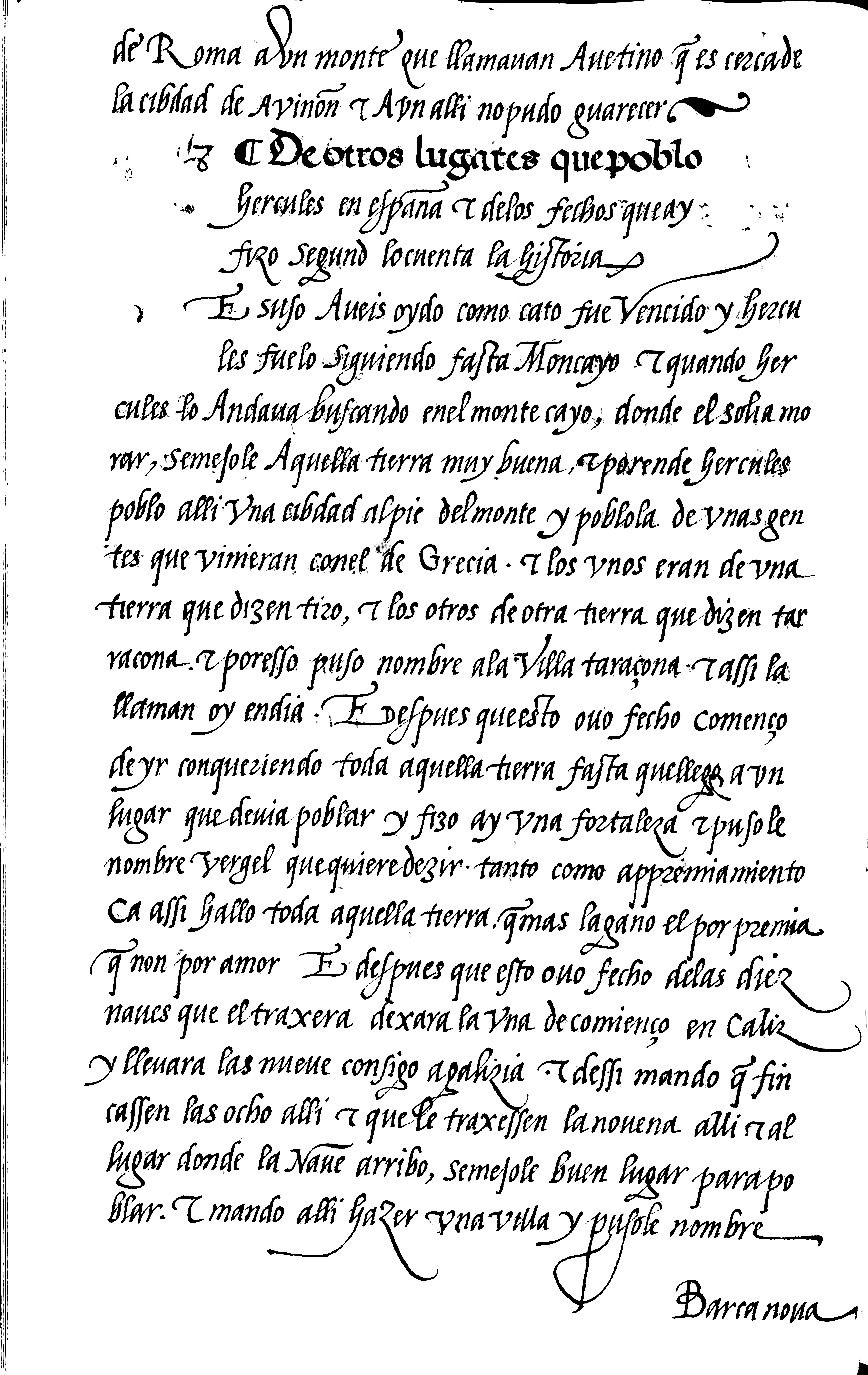 de Roma a Vn monte que llamauan Auetino q̃ es cerca de
la cibdad de Auinon̄ ⁊ Avn alli no pudo guarecer
¶ De otros lugares que poblo
hercules en españa ⁊ delos fechos que ay
fizo segund lo cuenta la historia
E suso Aueis oydo como cato fue Vencido y hercu
les fuelo siguiendo fasta Moncayo ⁊ quando her
cules lo Andaua buscando enel monte cayo, donde el solia mo
rar, semejole Aquella tierra muy buena, ⁊ porende hercules
poblo alli Vna cibdad al pie del monte y poblola de vnas gen
tes que vinieran conel de Grecia. ⁊ los vnos eran de vna
tierra que dizen tiro, ⁊ los otros de otra tierra que dizen tar
racona. ⁊ poresso puso nombre ala Villa taraçona. ⁊ assi la
llaman oy endia. E Despues que esto ouo fecho començo
de yr conqueriendo toda aquella tierra fasta que llego a vn
lugar que deuia poblar y fizo ay vna fortaleza ⁊ pusole
nombre Vergel que quiere dezir. tanto como appremiamiento
Ca assi hallo toda aquella tierra. q̃ mas la gano el por premia
q̃ non por amor E despues que esto ouo fecho delas diez
naues que el traxera dexara la Vna de comienço en Caliz
y lleuara las nueve consigo a galizia. ⁊ dessi mando q̃ fin
cassen las ocho alli ⁊ que le traxessen la nouena alli ⁊ al
lugar donde la Naue arribo, semejole buen lugar para po
blar. ⁊ mando alli hazer vna villa y pusole nombre
Barca noua